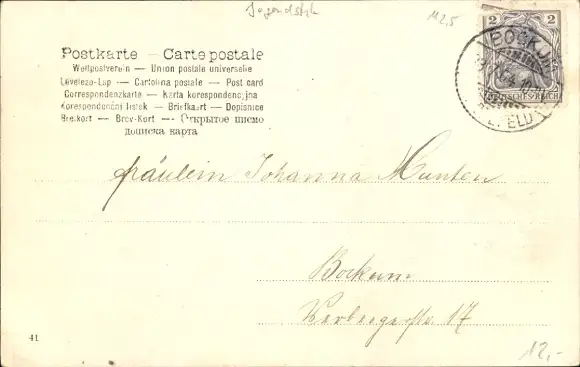 Jugendstil
M2,5
2 2
DEUTSCHES REICH
Postkarte – Carte postale
Weltpostverein — Union postale universelle
Levelezo-Lap — Cartolina postale — Post card
Correspondenzkarte — Karta korespondencyjna
Korespondenční listek — Briefkaart — Dopisnice
Brefkort — Brev-Kort — Открытое письмо
дописка карта
Fräulein Johanna Munten
Borkum
17
41
12,-